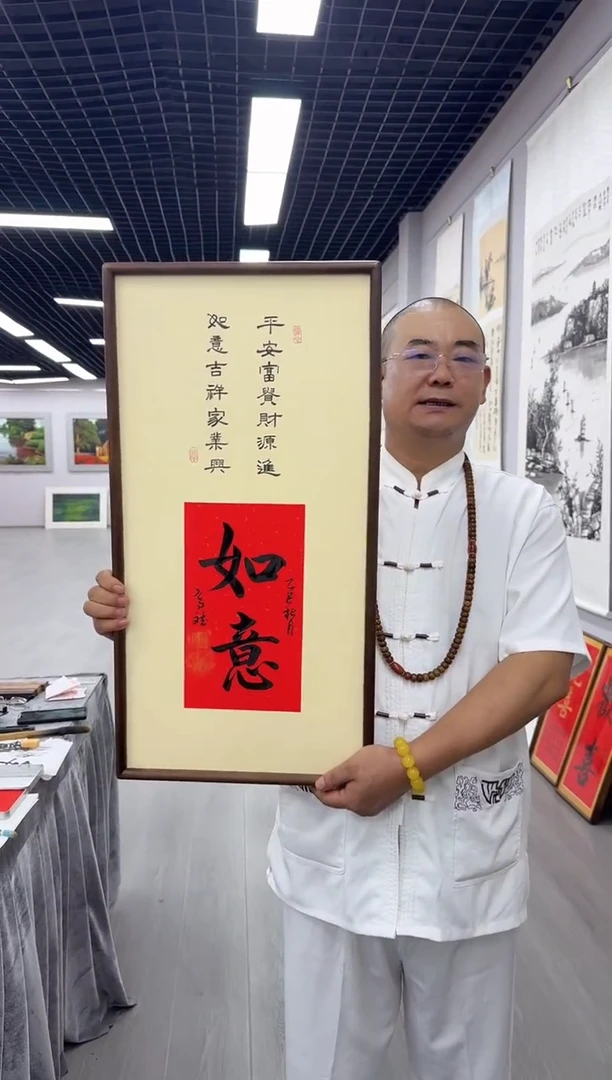 平安富貴財源進
如意吉祥家業興
如意
乙巳